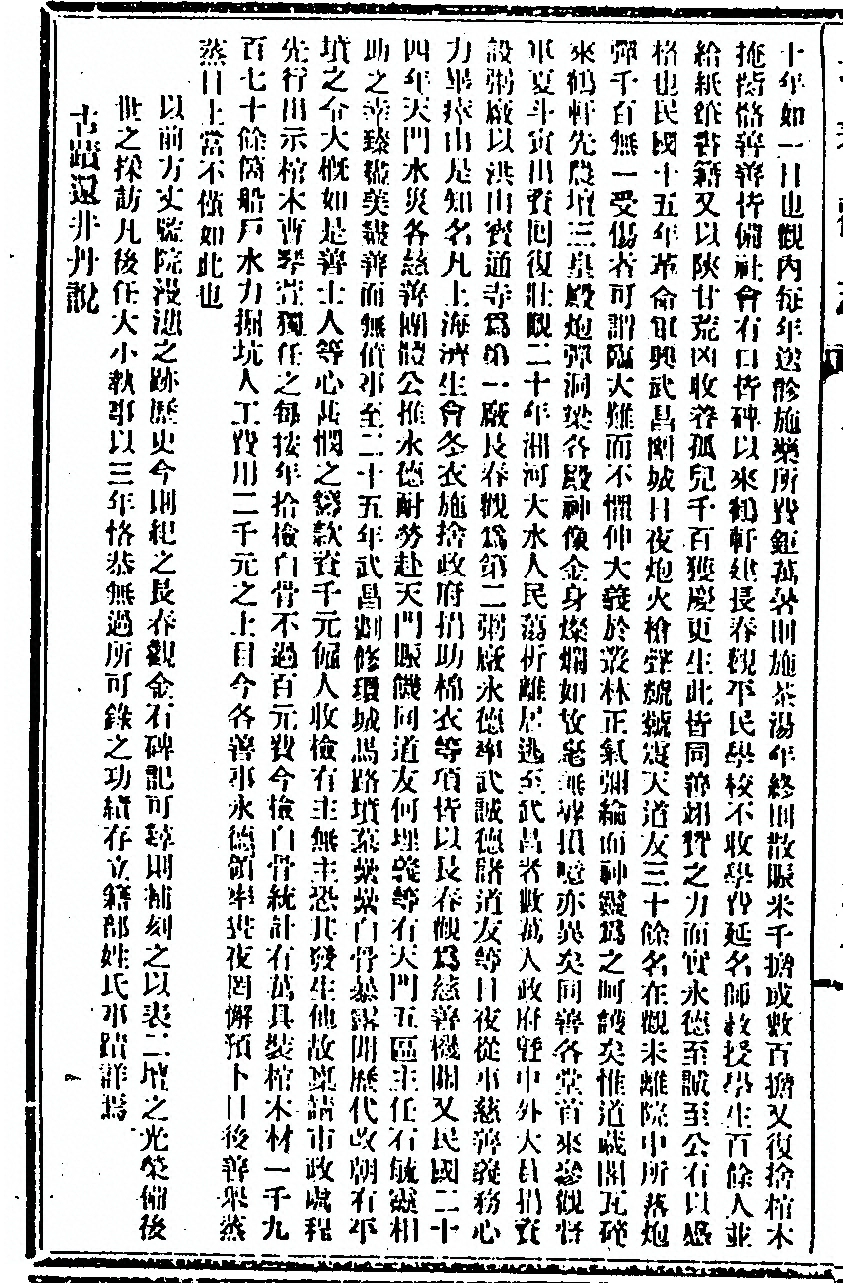 十年如一日也觀內每年送診施藥所費鉅萬暑則施茶湯年終則散賑米千擔或數百擔又復捨棺木
掩揜骼善善皆備社會有口皆碑以來鶴軒建長春觀平民學校不收學費延名師教授學生百餘人並
給紙筆書籍又以陝甘荒凶收養孤兒千百獲慶更生此皆同善翊贊之力而實永德至誠至公有以感
格也民國十五年革命軍興武昌閉城日夜炮火槍聲號號震天道友三十餘名在觀未離院中所落炮
彈千百無一受傷者可謂臨大難而不懼仲大義於叢林正氣彌綸而神靈爲之呵護矣惟道藏閣瓦碎
來鶴軒先農壇三皇殿炮彈洞梁各殿神像金身燦爛如故毫無掉損噫亦異矣同善各堂首來參觀督
軍夏斗寅出資回復壯觀二十年湘河大水人民蕩析離居逃至武昌者數萬人政府暨中外大員捐資
設粥廠以洪山寶通寺爲第一廠長春觀爲第二粥廠永德率武誠德諸道友等日夜從事慈善義務心
力畢瘁由是知名凡上海濟生會冬衣施捨政府捐助棉衣等項皆以長春觀爲慈善機關又民國二十
四年天門水災各慈善團體公推永德耐勞赴天門賑饑同道友何理義等有天門五區主任石毓靈相
助之幸臻蓋美盡善而無僨事至二十五年武昌測修環城馬路墳墓纍纍白骨暴露聞歷代改朝有平
墳之令大概如是善士人等心甚憫之籌款資千元僱人收檢有主無主恐其發生他故稟請市政處程
先行出示棺木曹琴萱獨任之每按年拾檢白骨不過百元費今檢白骨統計有萬具裝棺木材一千九
百七十餘箇船戶水力掘坑人工費用二千元之上目今各善事永德領率晝夜罔懈預卜日後善果蒸
蒸日上當不僅如此也
以前方丈監院湮沒之跡歷史今則紀之長春觀金石碑記可尋則補刻之以表二壇之光榮備後
世之採訪凡後任大小執事以三年恪恭無過所可錄之功績存立籍部姓氏事蹟詳焉
古蹟還井丹說